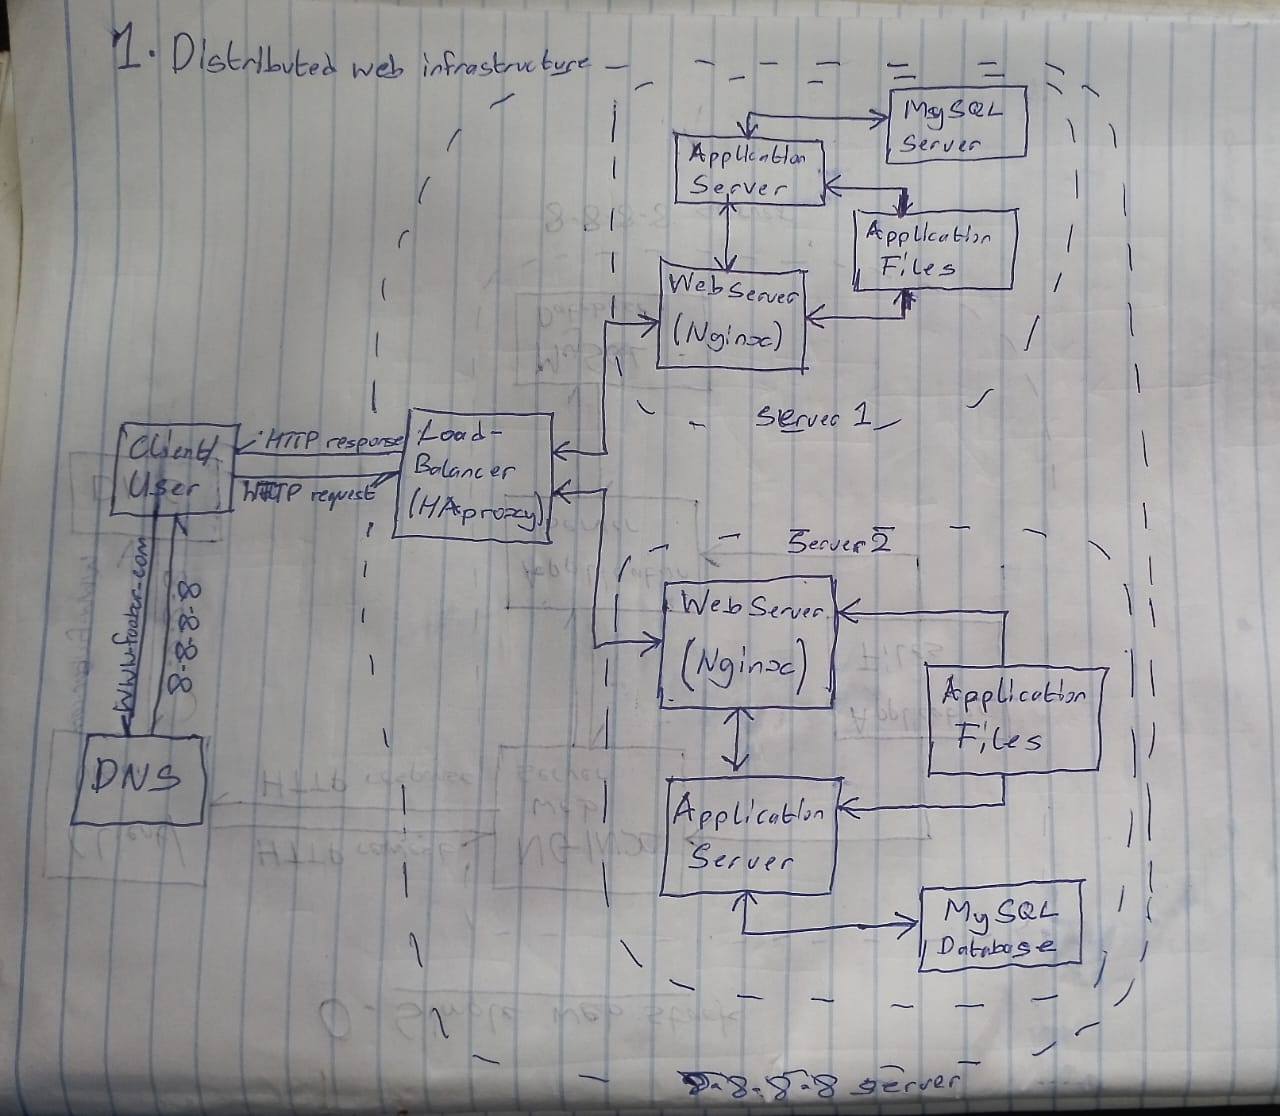 1. Distributed web infrastructure
MySQL
Server
Application
Server
Application
Files
Web Server
(Nginx)
Server 1
Client/
User
HTTP response
HTTP request
Load-
Balancer
(HAproxy)
www.foobar.com
8.8.8.8
DNS
Server 2
Web Server
(Nginx)
Application
Files
Application
Server
MySQL
Database
8.8.8.8 server